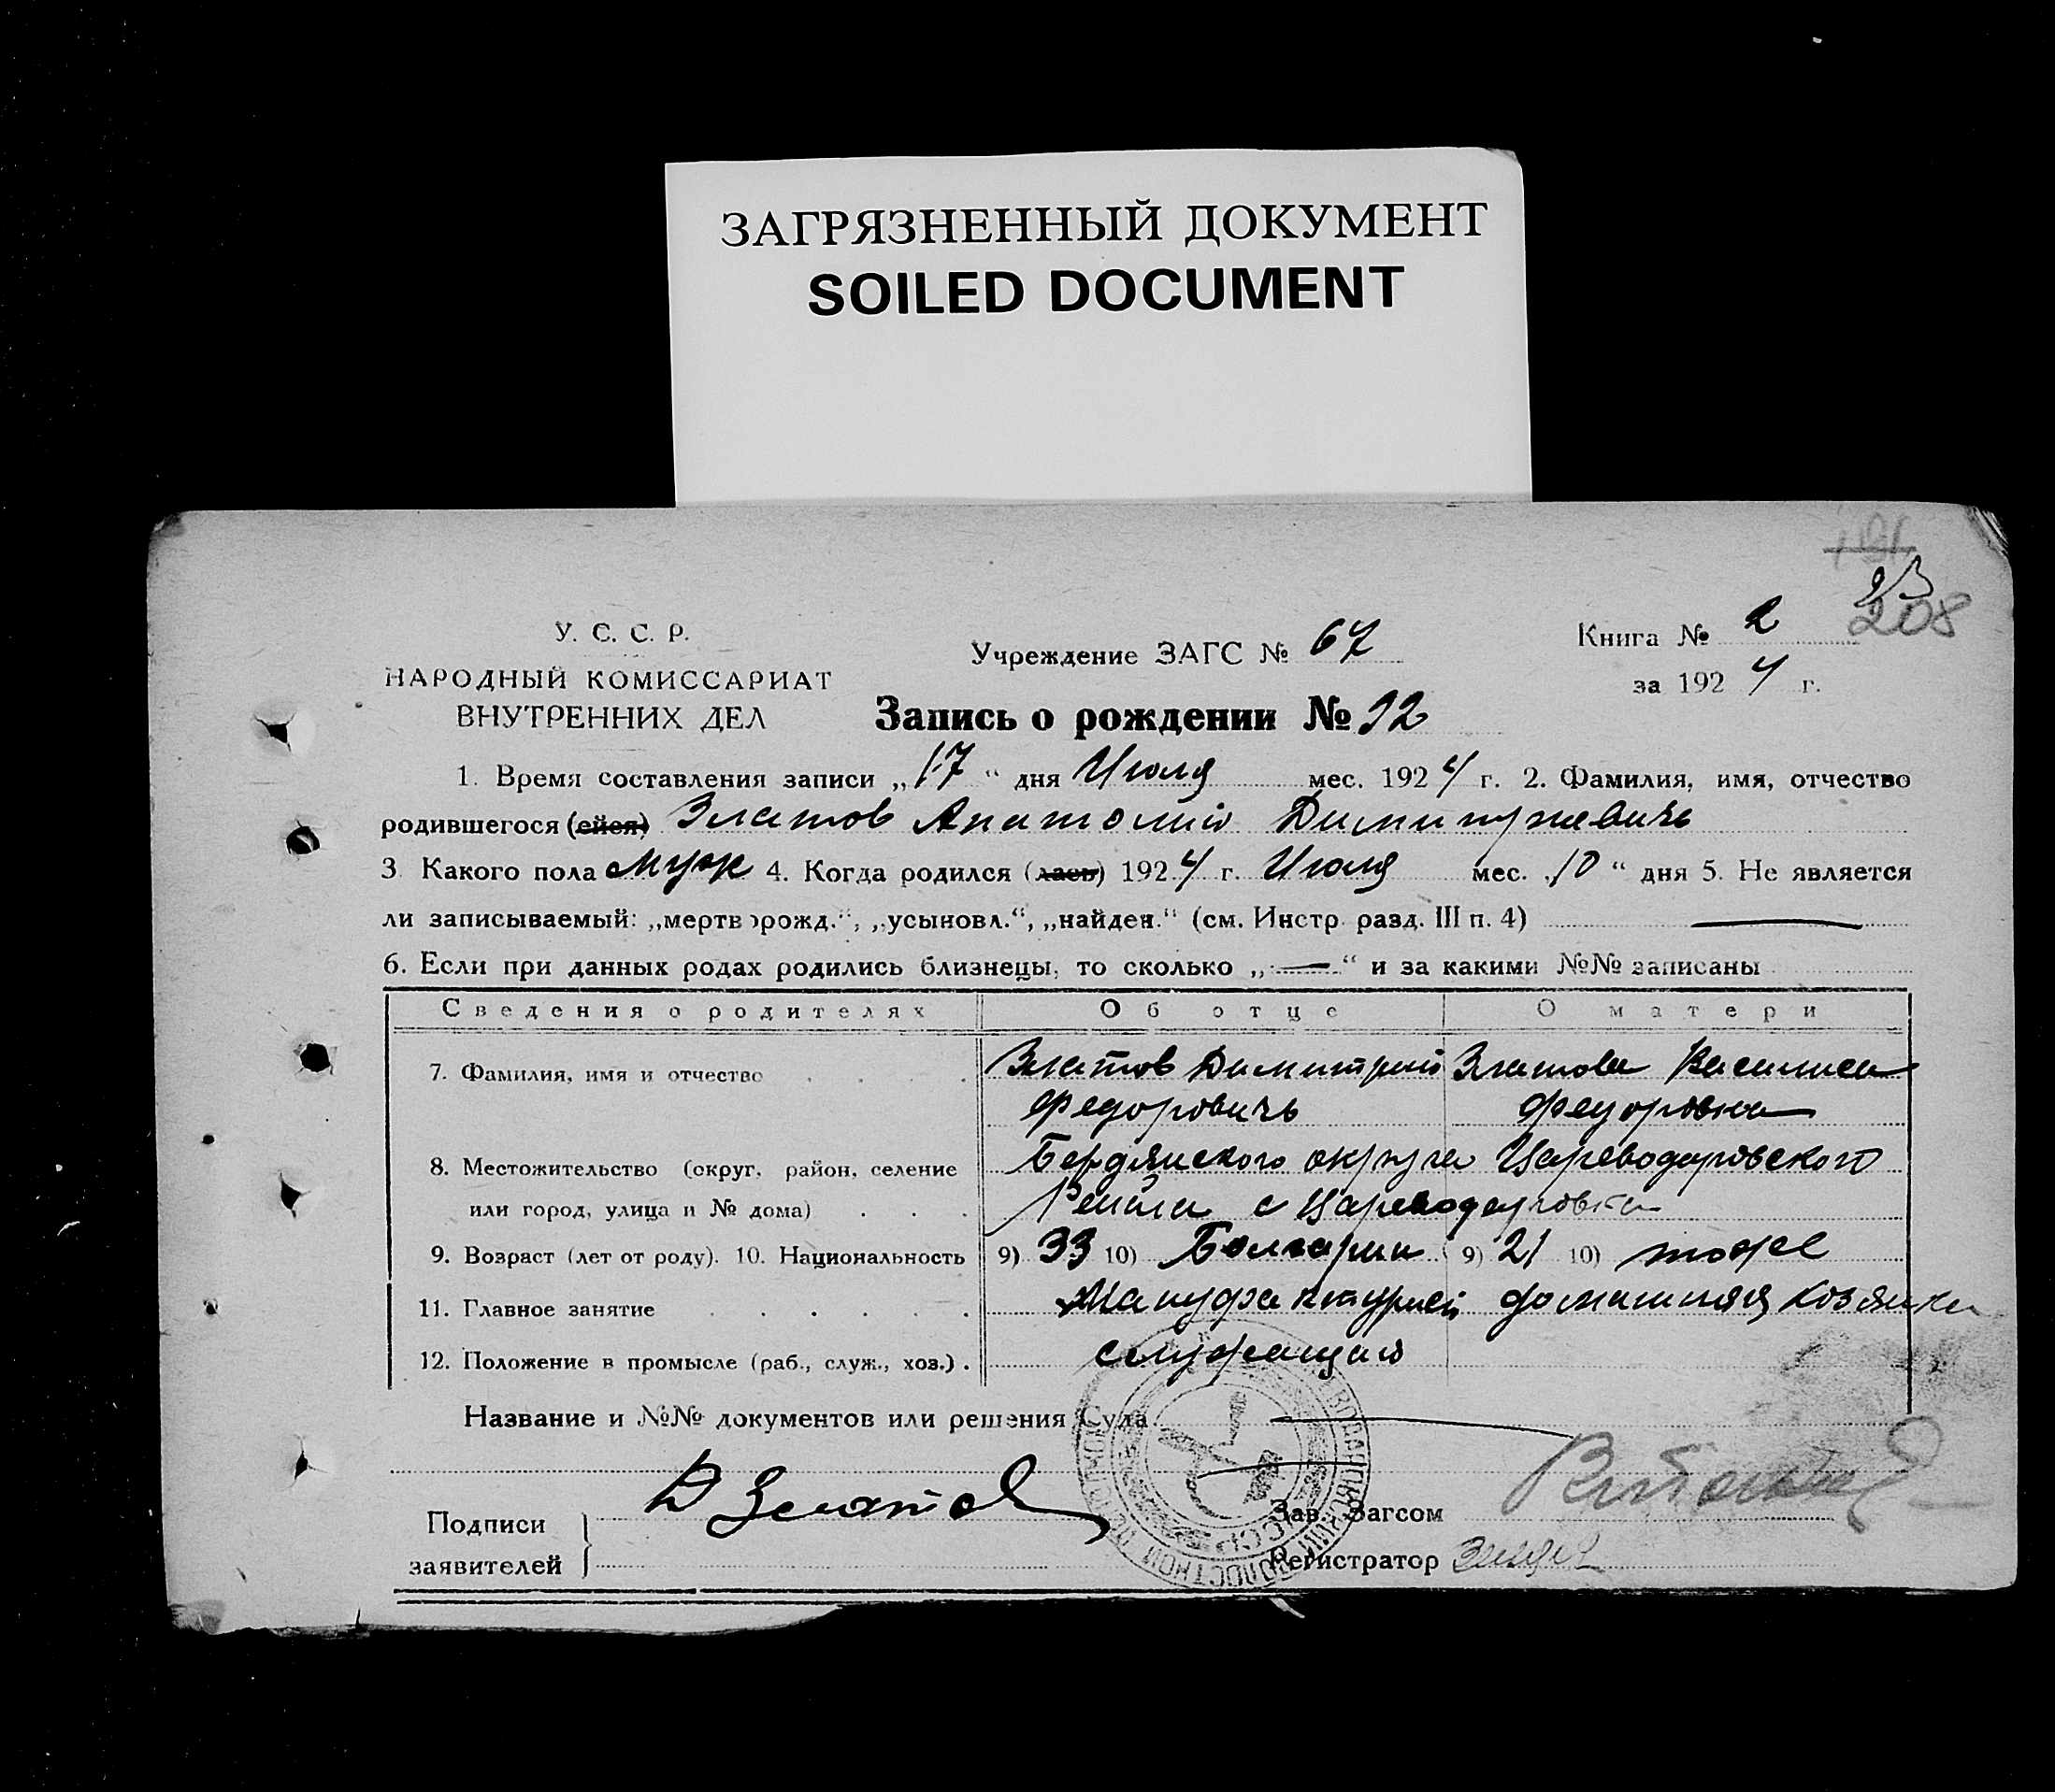 ЗАГРЯЗНЕННЫЙ ДОКУМЕНТ
SOILED DOCUMENT
208
У. С. С. Р.
НАРОДНЫЙ КОМИССАРИАТ
ВНУТРЕННИХ ДЕЛ
Учреждение ЗАГС № 67
Книга № 2
за 1924 г.
Запись о рождении № 92
1. Время составления записи „17“ дня Июля мес. 1924 г. 2. Фамилия, имя, отчество
родившегося (ейся) Златов Анатолий Димитриевичъ
3 Какого пола муж 4. Когда родился (лась) 1924 г. Июля мес. „10“ дня 5. Не является
ли записываемый: „мертворожд.“, „усыновл.“, „найден.“ (см. Инстр. разд. III п. 4) —
6. Если при данных родах родились близнецы, то сколько „—“ и за какими №№ записаны
Сведения о родителях Об отце О матери
7. Фамилия, имя и отчество Златов Димитрий Златова Василиса
Федоровичъ Федоровна
8. Местожительство (округ, район, селение Бердянского округа Цареводаровского
или город, улица и № дома) Района с Цареводаровка
9. Возраст (лет от роду). 10. Национальность 9) 33 10) Болгарин 9) 21 10) тоже
11. Главное занятие домашняя хозяйка
12. Положение в промысле (раб., служ., хоз.) служащий
Название и №№ документов или решения Суда
Подписи Д Златов Зав. Загсом
заявителей Регистратор